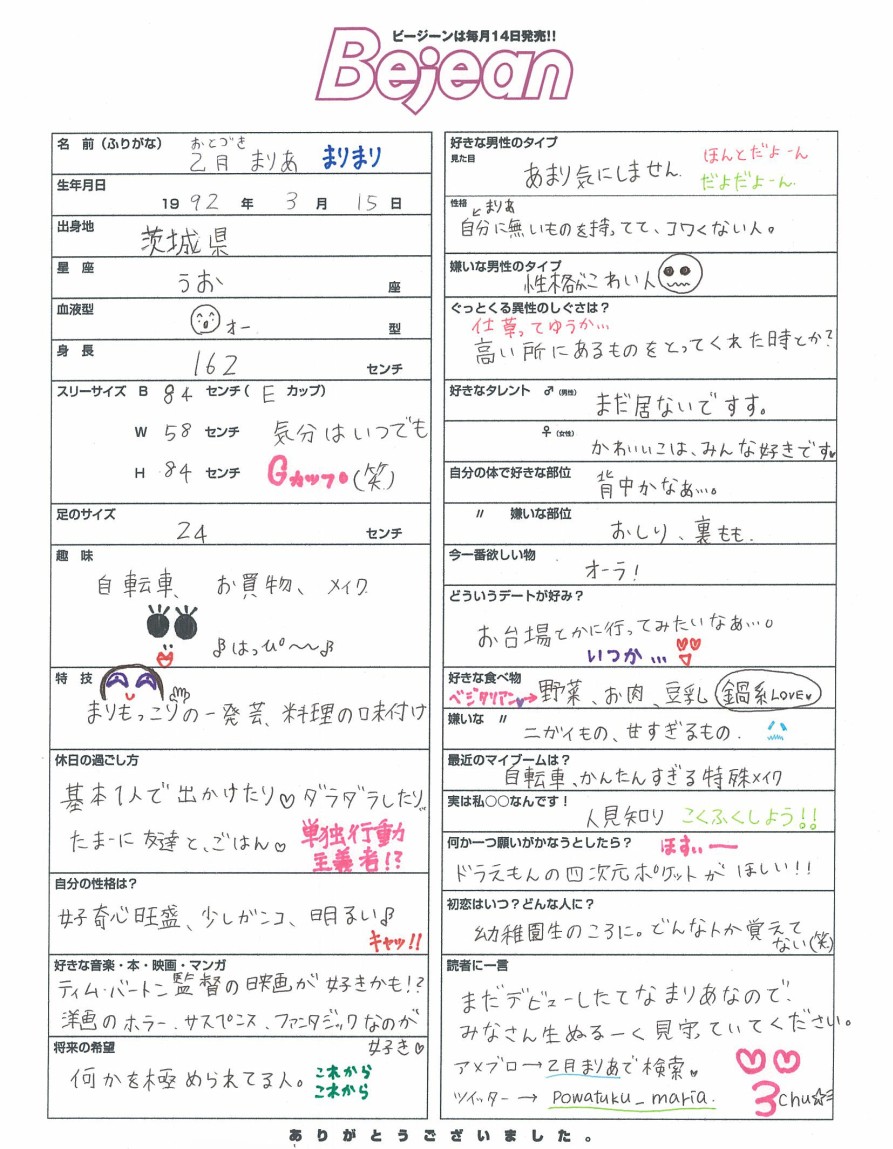 ビージーンは毎月14日発売!!
Bejean
名 前(ふりがな)
おとづき
乙月 まりあ まりまり
生年月日
1992年 3月 15日
出身地
茨城県
星 座
うお 座
血液型
オー 型
身 長
162 センチ
スリーサイズ B 84 センチ( E カップ)
W 58 センチ 気分はいつでも
H 84 センチ Gカップ。(笑)
足のサイズ
24 センチ
趣 味
自転車、お買物、メイク
♪はっぴ〜〜♪
特 技
まりもっこりの一発芸、料理の味付け
休日の過ごし方
基本1人で出かけたり♡ダラダラしたり
たまーに友達と、ごはん♡ 単独行動
主義者!?
自分の性格は?
好奇心旺盛、少しガンコ、明るい♪
キャッ!!
好きな音楽・本・映画・マンガ
ティム・バートン監督の映画が好きかも!?
洋画のホラー、サスペンス、ファンタジックなのが
好き♡
将来の希望
何かを極められてる人。 これから
これから
好きな男性のタイプ
見た目
あまり気にしません。 ほんとだよーん
だよだよーん。
性格
まりあ
自分に無いものを持ってて、コワくない人。
嫌いな男性のタイプ
性格がこわい人
ぐっとくる異性のしぐさは?
仕草ってゆうか…
高い所にあるものをとってくれた時とか?
好きなタレント ♂(男性)
まだ居ないですす。
♀(女性)
かわいいこは、みんな好きです♥
自分の体で好きな部位
背中かなぁ…。
〃 嫌いな部位
おしり、裏もも。
今一番欲しい物
オーラ!
どういうデートが好み?
お台場とかに行ってみたいなぁ…。
いつか…
好きな食べ物
ベジタリアン→野菜、お肉、豆乳 鍋系LOVE♥
嫌いな 〃
ニガイもの、せすぎるもの.
最近のマイブームは?
自転車、かんたんすぎる特殊メイク
実は私○○なんです!
人見知り こくふくしよう!!
何か一つ願いがかなうとしたら? ほすぃー
ドラえもんの四次元ポケットがほしい!!
初恋はいつ?どんな人に?
幼稚園生のころに。どんな人か覚えて
ない(笑)
読者に一言
まだデビューしたてなまりあなので、
みなさん生ぬるーく見守っていてください。
アメブロ→乙月まりあで検索♥
ツイッター→ powatuku_maria.
3chu☆
ありがとうございました。